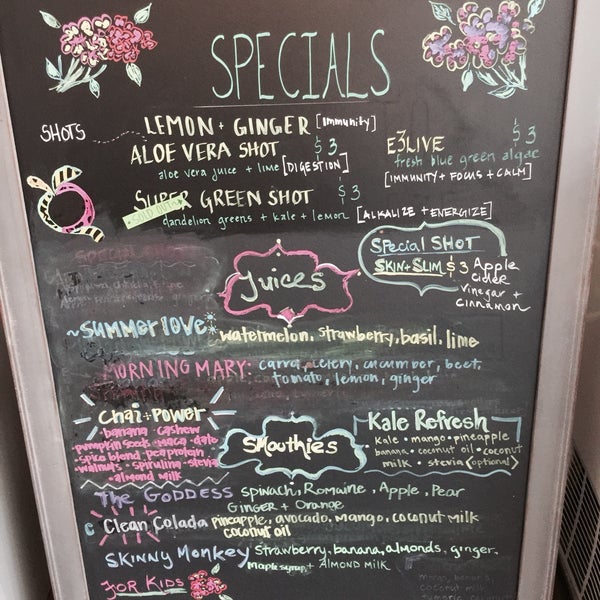 SPECIALS
SHOTS
LEMON + GINGER [Immunity]
ALOE VERA SHOT $3
aloe vera juice + lime [DIGESTION]
E3LIVE $3
fresh blue green algae
[IMMUNITY + FOCUS + CALM]
SUPER GREEN SHOT $3
SOLD OUT
dandelion greens + kale + lemon [ALKALIZE + ENERGIZE]
Special SHOT
SKIN + SLIM $3 Apple
Cider
Vinegar +
Cinnamon
Juices
~SUMMER LOVE watermelon, strawberry, basil, lime
MORNING MARY: carrot, celery, cucumber, beet,
tomato, lemon, ginger
Chai + Power
banana • cashew
pumpkin seeds • maca • date
spice blend • pea protein
walnuts • spirulina • stevia
• almond milk
Smoothies
Kale Refresh
kale • mango • pineapple
banana • coconut oil • coconut
milk • stevia (optional)
THE GODDESS spinach, Romaine, Apple, Pear
Ginger + Orange
Clean Colada pineapple, avocado, mango, coconut milk
coconut oil
SKINNY MONKEY strawberry, banana, almonds, ginger,
maple syrup + ALMOND MILK
FOR KIDS
coconut milk